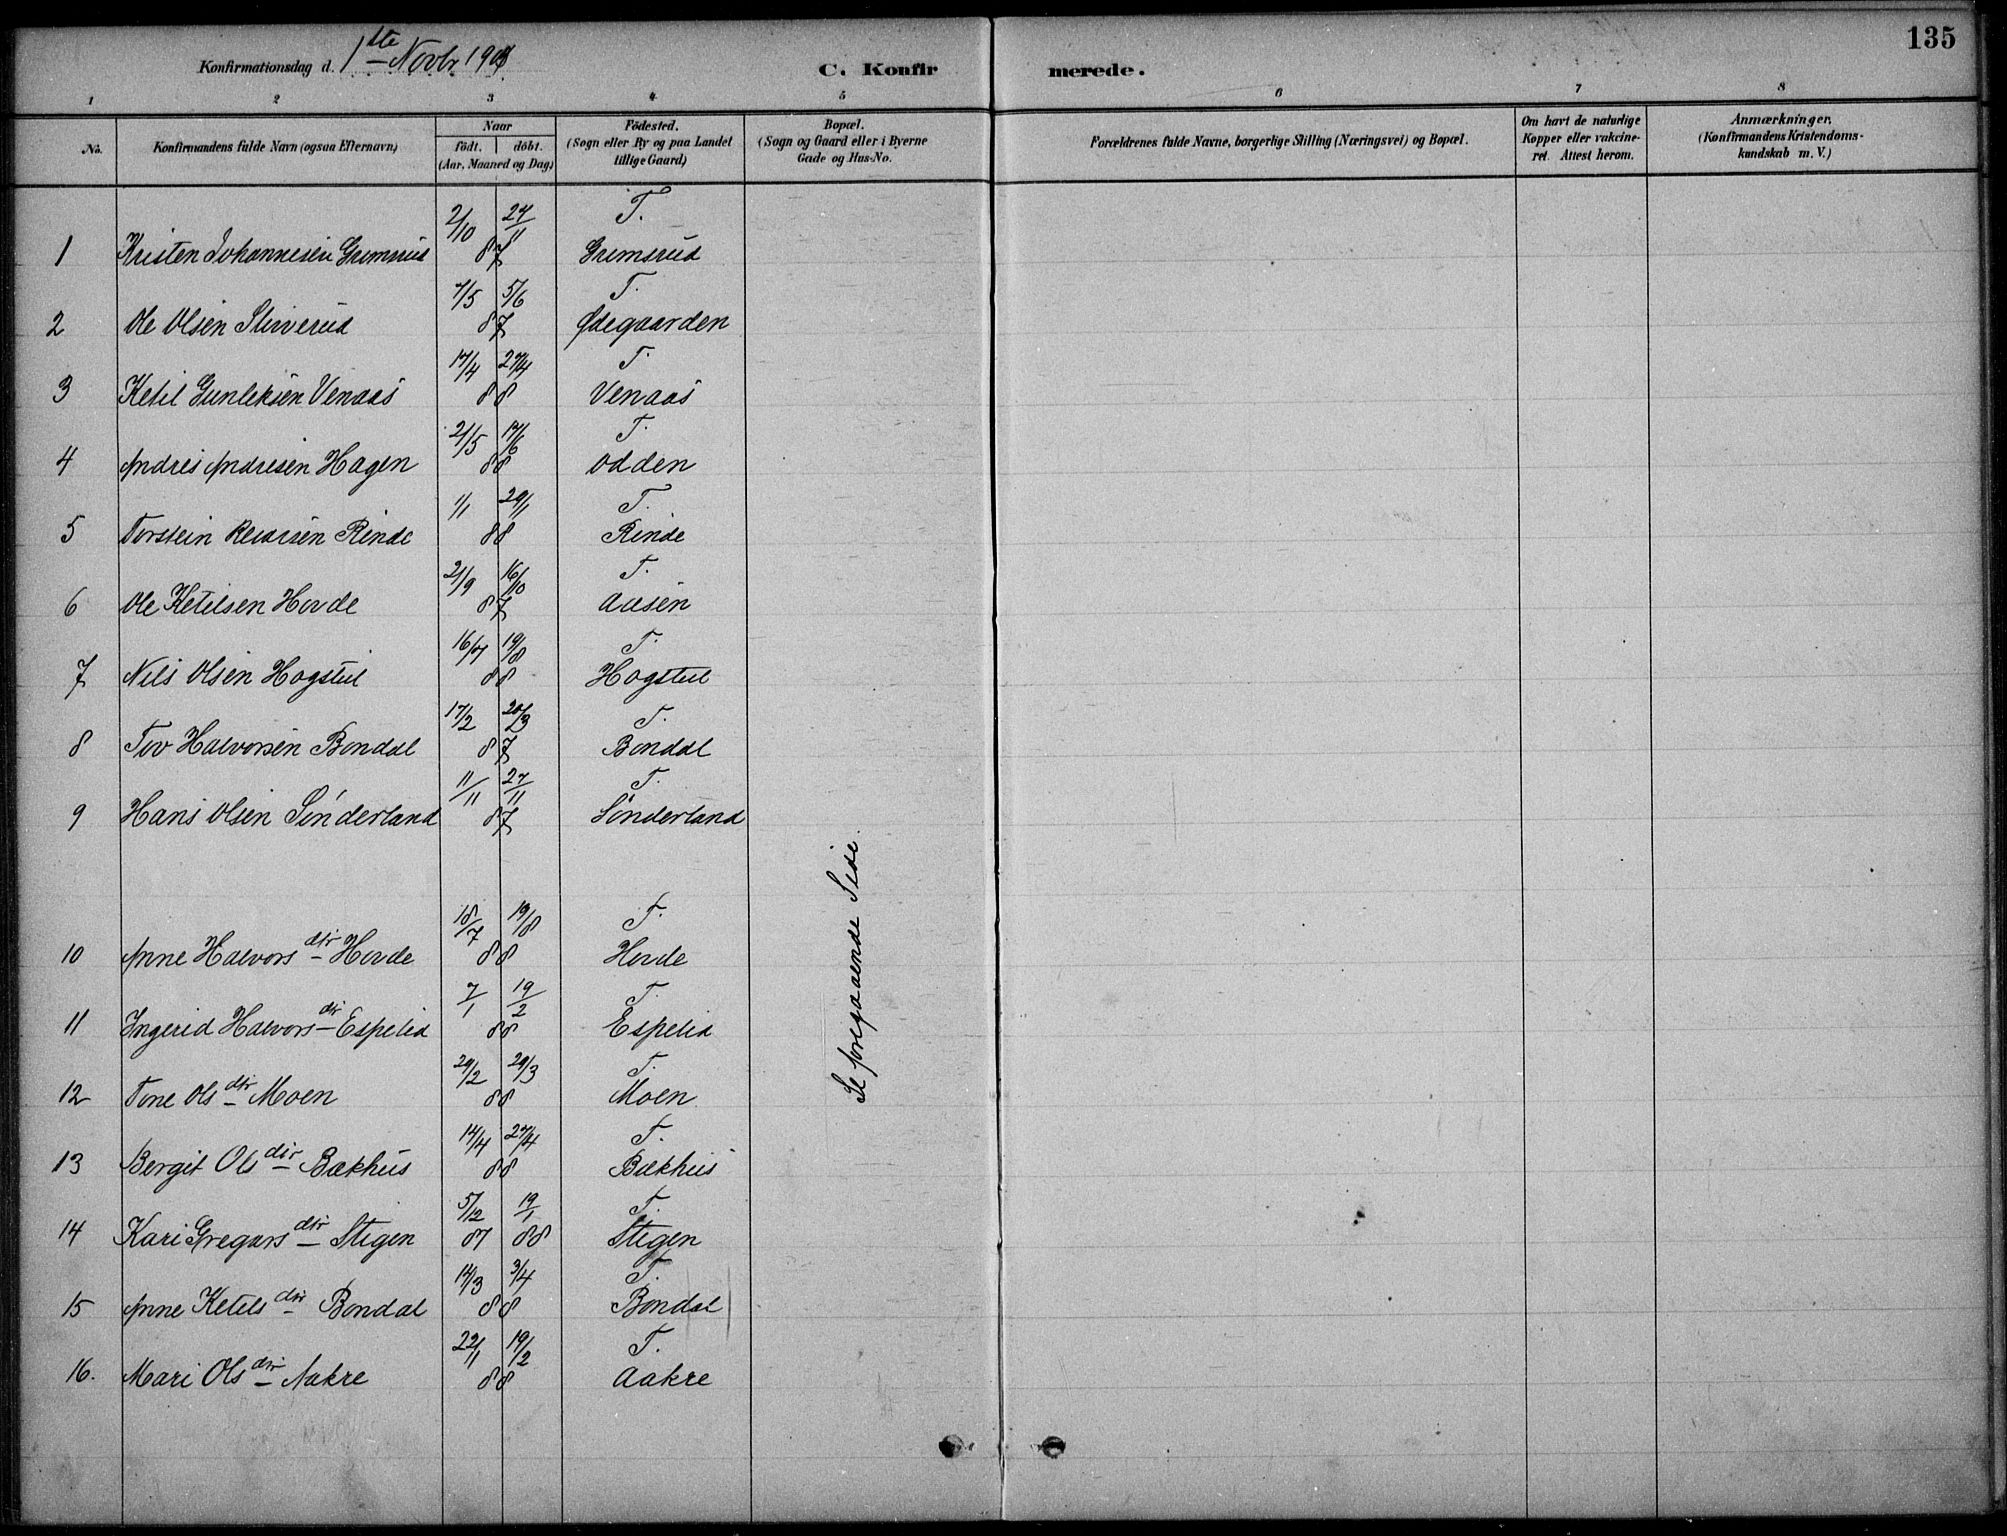 135
Konfirmationsdag d. 1ste Novbr 190
C. Konfirmerede.
1 2 3 4 5 6 7 8
No. Konfirmandens fulde Navn (ogsaa Efternavn) Naar födt. döbt. (Aar, Maaned og Dag) Födested. (Sogn eller By og paa Landet tillige Gaard) Bopæl. (Sogn og Gaard eller i Byerne Gade og Hus-No. Forældrenes fulde Navne, borgerlige Stilling (Næringsvei) og Bopæl. Om havt de naturlige Kopper eller vakcineret. Attest herom. Anmærkninger. (Konfirmandens Kristendomskundskab m. V.)
2/10 27/11 T.
1 Kristen Johannesen Grimsrud 87 Grimsrud
7/5 5/6 T.
2 Ole Olsen 87 Ødegaarden
17/4 27/4 T.
3 Ketil Gunleksen Venaas 88 Venaas
21/5 17/6 T.
4 Andres Andresen Hagen 88 Odden
1/1 29/1 T.
5 Torstein Rinde 88 Rinde
21/9 16/10 T.
6 Ole Ketelsen Hovde 87 Aasen
16/7 19/8 T.
7 Nils Olsen Hogstul 88 Hogstul
17/2 20/3 T.
8 Tov Halvorsen Bondal 87 Bondal
11/11 27/11 T.
9 Hans Olsen Sönderland 87 Sönderland
18/7 19/8 T.
10 Anne Halvorsdtr Hovde 88 Hovde
7/1 19/2 T.
11 Ingerid Halvorsdtr Espelid 88 Espelid
29/2 29/3 T.
12 Tone Olsdtr Moen 88 Moen
14/4 27/4 T.
13 Bergit Olsdtr Bækhus 88 Bækhus
5/12 19/1 T.
14 Kari Gregarsdtr Stigen 87 88 Stigen
14/3 3/4 T.
15 Anne Ketelsdtr Bondal 88 Bondal
22/1 19/2 T.
16. Mari Olsdtr Aakre 88 Aakre
Se foregaaende Side.